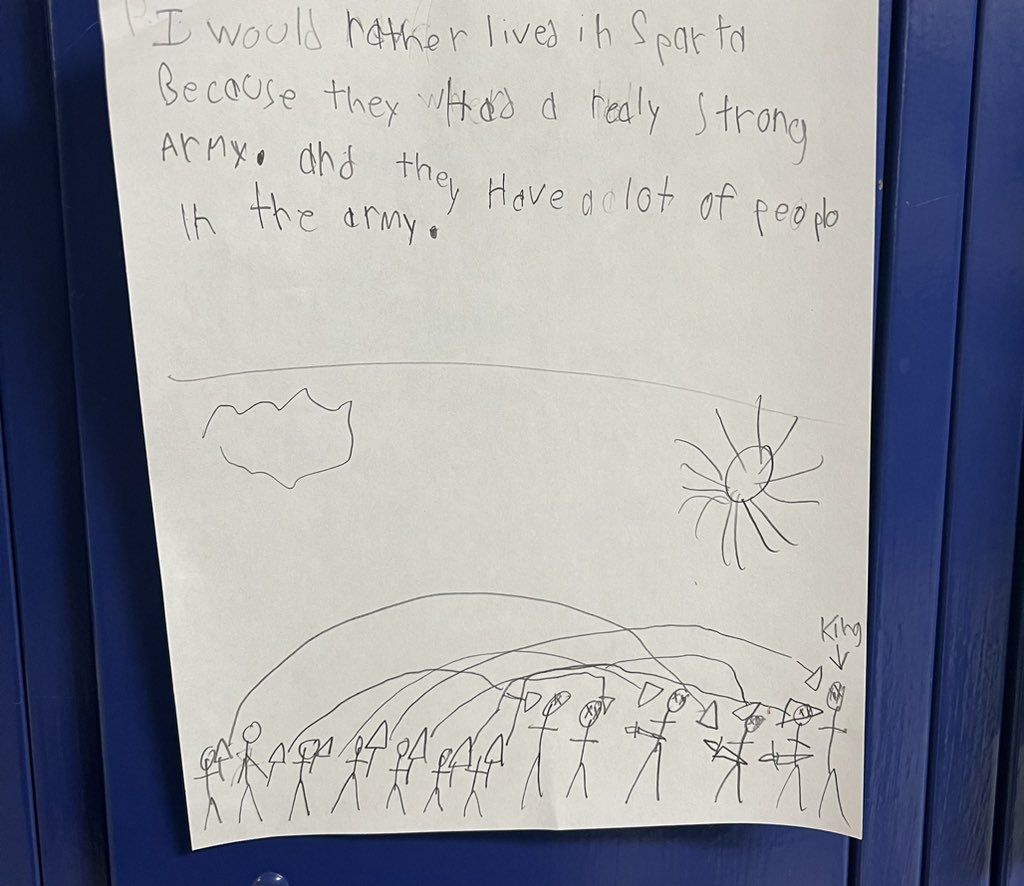 I would rather lived in Sparta
Because they Had a realy strong
Army. and they Have a lot of peopl
in the army.
King